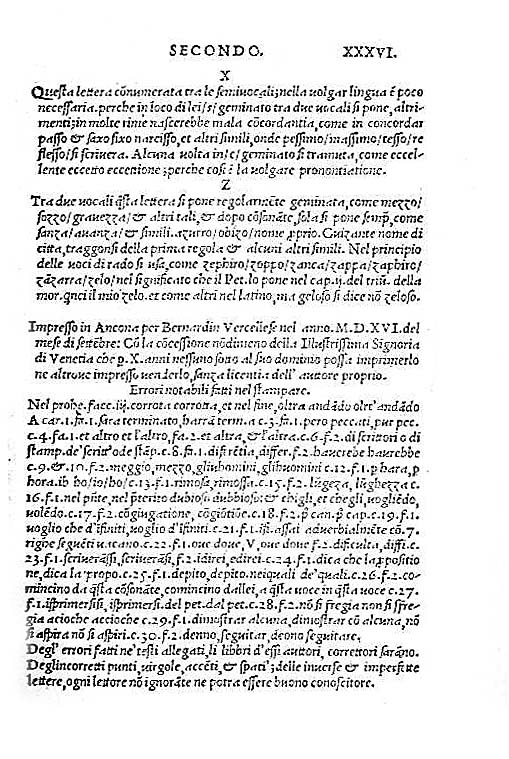 SECONDO. XXXVI.
X
Questa lettera cōnumerata tra le semiuocali; nella uolgar lingua è poco
necessaria. perche in loco di lei/s/ geminato tra due uocali si pone, altri-
menti; in molte rime nascerebbe mala cōcordantia, come in concordar
passo & saxo fixo narcisso, et altri simili, onde pessimo/massimo/tesso/re
flesso/si scriuera. Alcuna uolta in/c/geminato si tramuta, come eccel-
lente eccetto eccettione; perche cosi è la uolgare prononciatione.
Z
Tra due uocali q̄sta lettera si pone regolarmēte geminata, come mezzo/
sozzo/grauezza/& altri tali, & dopo cōsonāte, sola si pone semp̄, come
sanza/auanza/& simili. azurro/obizo/nome ꝓprio. Guizante nome di
citta, traggonsi della prima regola & alcuni altri simili. Nel principio
delle uoci di rado si usa, come zephiro/zoppo/zanca/zappa/zaphiro/
zāzarra/zelo/nel significato che il Pet. lo pone nel cap. ij. del triū. della
mor. q̄nci il mio zelo. et come altri nel latino, ma geloso si dice nō zeloso.
Impresso in Ancona per Bernardin Vercellese nel anno. M.D.XVI. del
mese di settēbre: Cō la cōcessione nōdimeno della Illustrissima Signoria
di Venetia che ꝑ. X. anni nessuno sotto al suo dominio possa imprimerlo
ne altroue impresso uenderlo, sanza licentia dell' auttore proprio.
Errori notabili fatti nel stampare.
Nel prohe. facc. iij. corrota corrotta, et nel fine, oltra andādo oltr' andādo
A car. 1. fa. 1. sara terminato, harrā termīa c. 3. fa. 1. pero peccati, pur pec.
c. 4. fa. 1. et altro et l'altro, fa. 2. et altra, & l'altra. c. 6. f. 2. di scrittori o di
stamp. de' scritt' o de stāp. c. 8. fa. 1. difirētia, differ. f. 2. haucrebe haurebbe
c. 9. & 10. f. 2. meggio, mezzo, gliuhomini, glihuomini c. 12. f. 1. ꝑ hara, p
hora. ib ho/io/ho/c. 13. f. 1. rimosa, rimossa. c. 15. f. 2. lūgeza, lūghezza c.
16. f. 1. nel p̄ite, nel p̄terito dubioso dubbioso: & chigli, et chegli, uogliēdo,
uolēdo. c. 17. f. 2. cōgiugatione, cōgiōtiōe. c. 18. f. 2. p̄ can. p̄ cap. c. 19. f. 1.
uoglio che d'ifiniti, uoglio d'ifiniti c. 21. f. 1. ifi. assai aduerbialmēte cō. 7.
righe seguēti uacano. c. 22. f. 1. oue doue, V, oue doue f. 2. dificulta, diffi. c.
23. f. 1. scriuerāssi, scriuerāsi, f. 2. idirei, edirei. c. 24. f. 1. dica che la ꝓpositio
ne, dica la ꝓpo. c. 25. f. 1. depito, depito. neiquali de' quali. c. 26. f. 2. co-
mincino da q̄sta cōsonāte, comincino dallei, a q̄sta uoce in q̄sta uoce c. 27.
f. 1. isprimersisi, isprimersi. del pet. dal pet. c. 28. f. 2. nō si fregia non si sfre-
gia acioche accioche c. 29. f. 1. dimostrar alcuna, dimostrar cō alcuna, nō
si aspira nō si aspiri. c. 30. f. 2. denno, seguitar, deono seguitare.
Degl' errori fatti ne' testi allegati, li libri d'essi auttori, correttori sarāno.
Deglincorretti punti, uirgole, accēti, & spati'; delle inuerse & imperfette
lettere, ogni lettore nō ignorāte ne potra essere buono conoscitore.